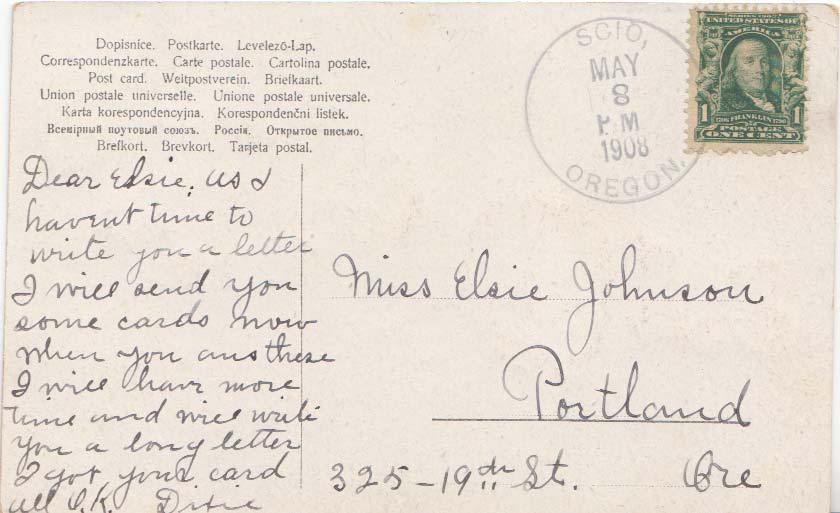 Dopisnice. Postkarte. Levelező-Lap.
Correspondenzkarte. Carte postale. Cartolina postale.
Post card. Weltpostverein. Briefkaart.
Union postale universelle. Unione postale universale.
Karta korespondencyjna. Korespondenční listek.
Всемірный поутовый союзъ. Россія. Открытое письмо.
Brefkort. Brevkort. Tarjeta postal.
SCIO,
MAY
8
P M
1908
OREGON.
SERIES 1902
UNITED STATES OF
AMERICA
1 FRANKLIN 1
POSTAGE
ONE CENT
Dear Elsie. As I
havent time to
write you a letter
I will send you
some cards now
when you ans these
I will have more
time and will write
you a long letter
I got your card
all O.K. Dixie
Miss Elsie Johnson
Portland
325-19th St. Ore